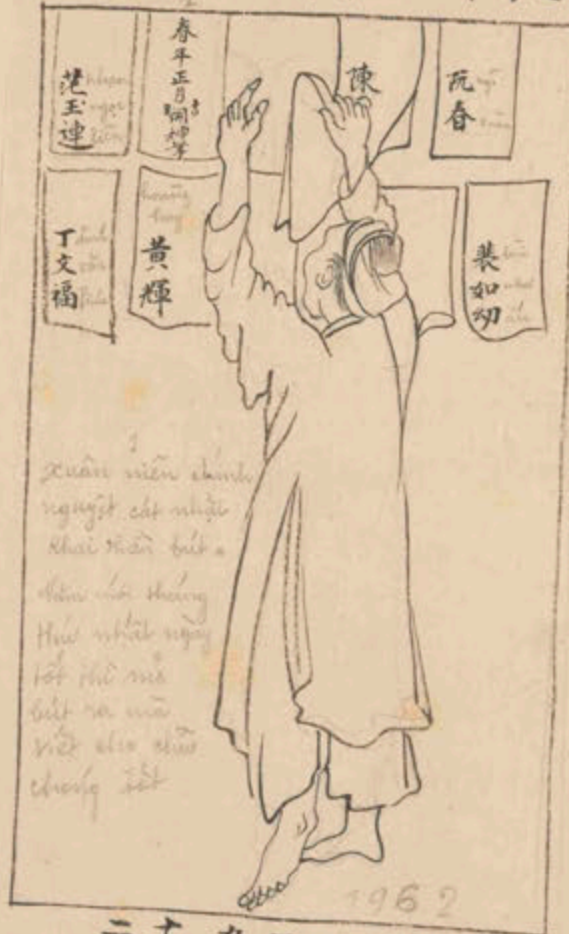 范玉連
phạm
ngọc
liên
陳
阮春
丁文福
đinh
văn
黃輝
hoàng
huy
裴如幼
bùi
như
ấu
1
xuân niên chính
nguyệt cát nhật
khai thần bút.
năm mới tháng
thứ nhất ngày
tốt thì mở
bút ra mà
viết cho chữ
chóng tốt
1962